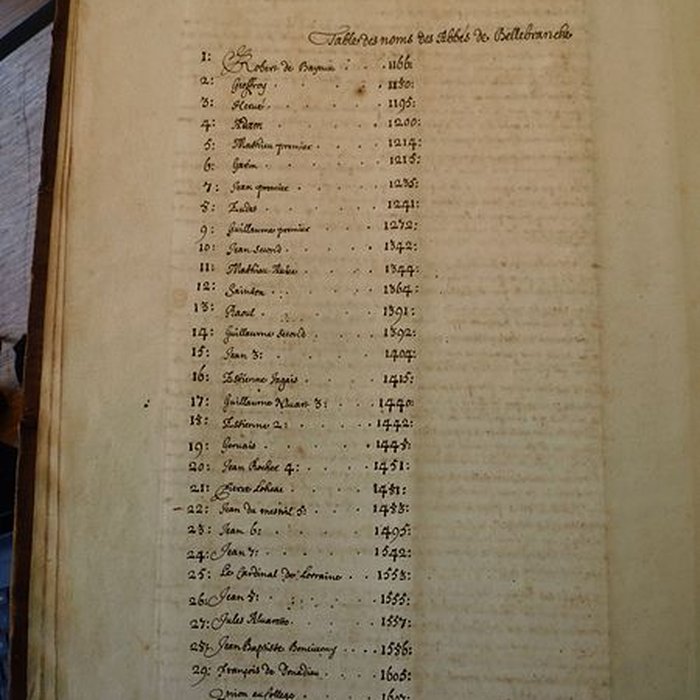 Table des noms des Abbés de Bellebranche
1: Robert de 1166:
2: Geoffroy 1180:
3: Hervé 1195:
4: Adam 1200:
5: Mathieu premier 1214:
6: 1215:
7: Jean premier 1235:
8: Eudes 1241:
9: Guillaume premier 1272:
10: Jean second 1342:
11: Mathieu 1344:
12: 1364:
13: Raoul 1391:
14: Guillaume second 1392:
15: Jean 3: 1404:
16: Estienne 1415:
17: Guillaume 3: 1440:
18: Estienne 2: 1442:
19: Gervais 1448:
20: Jean Rochet 4: 1451:
21: Pierre 1481:
22: Jean du mesnil 5: 1483:
23: Jean 6: 1495:
24: Jean 7: 1542:
25: Le Cardinal de Lorraine 1553:
26: Jean 8: 1555:
27: Jules 1557:
28: Jean Baptiste 1586:
29: François de Donadieu 1605:
Union au College